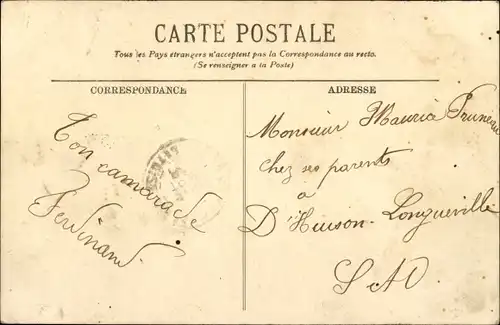 CARTE POSTALE
Tous les Pays étrangers n'acceptent pas la Correspondance au recto.
(Se renseigner a la Poste)
CORRESPONDANCE
Ton camarade
Ferdinand
ADRESSE
Monsieur Pruneau
chez ses parents
à
D'Huison-Longueville
S AO